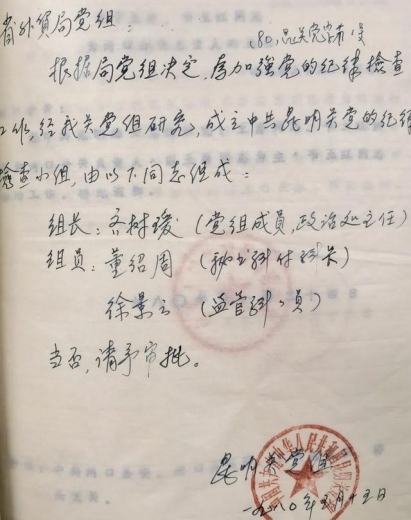 省外贸局党组：
根据局党组决定，为加强党的纪律检查
工作，经我关党组研究，成立中共昆明关党的纪律
检查小组，由以下同志组成：
组长：齐树瑷（党组成员，政治处主任）
组员：董绍周（秘书科付科长）
徐景云（监管科科员）
当否，请予审批。
昆明关党组
一九八〇年 月十五日